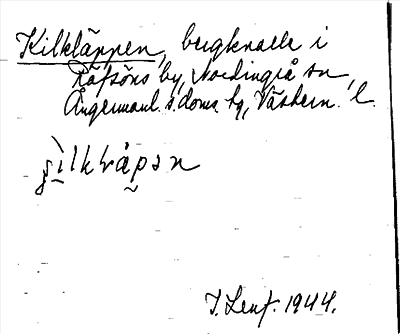 Kilkläppen, bergknalle i
Räfsöns by, Nordingrå sn,
Ångermanl. s. doms. hg, Västern. l.
J. Lenf. 1944.